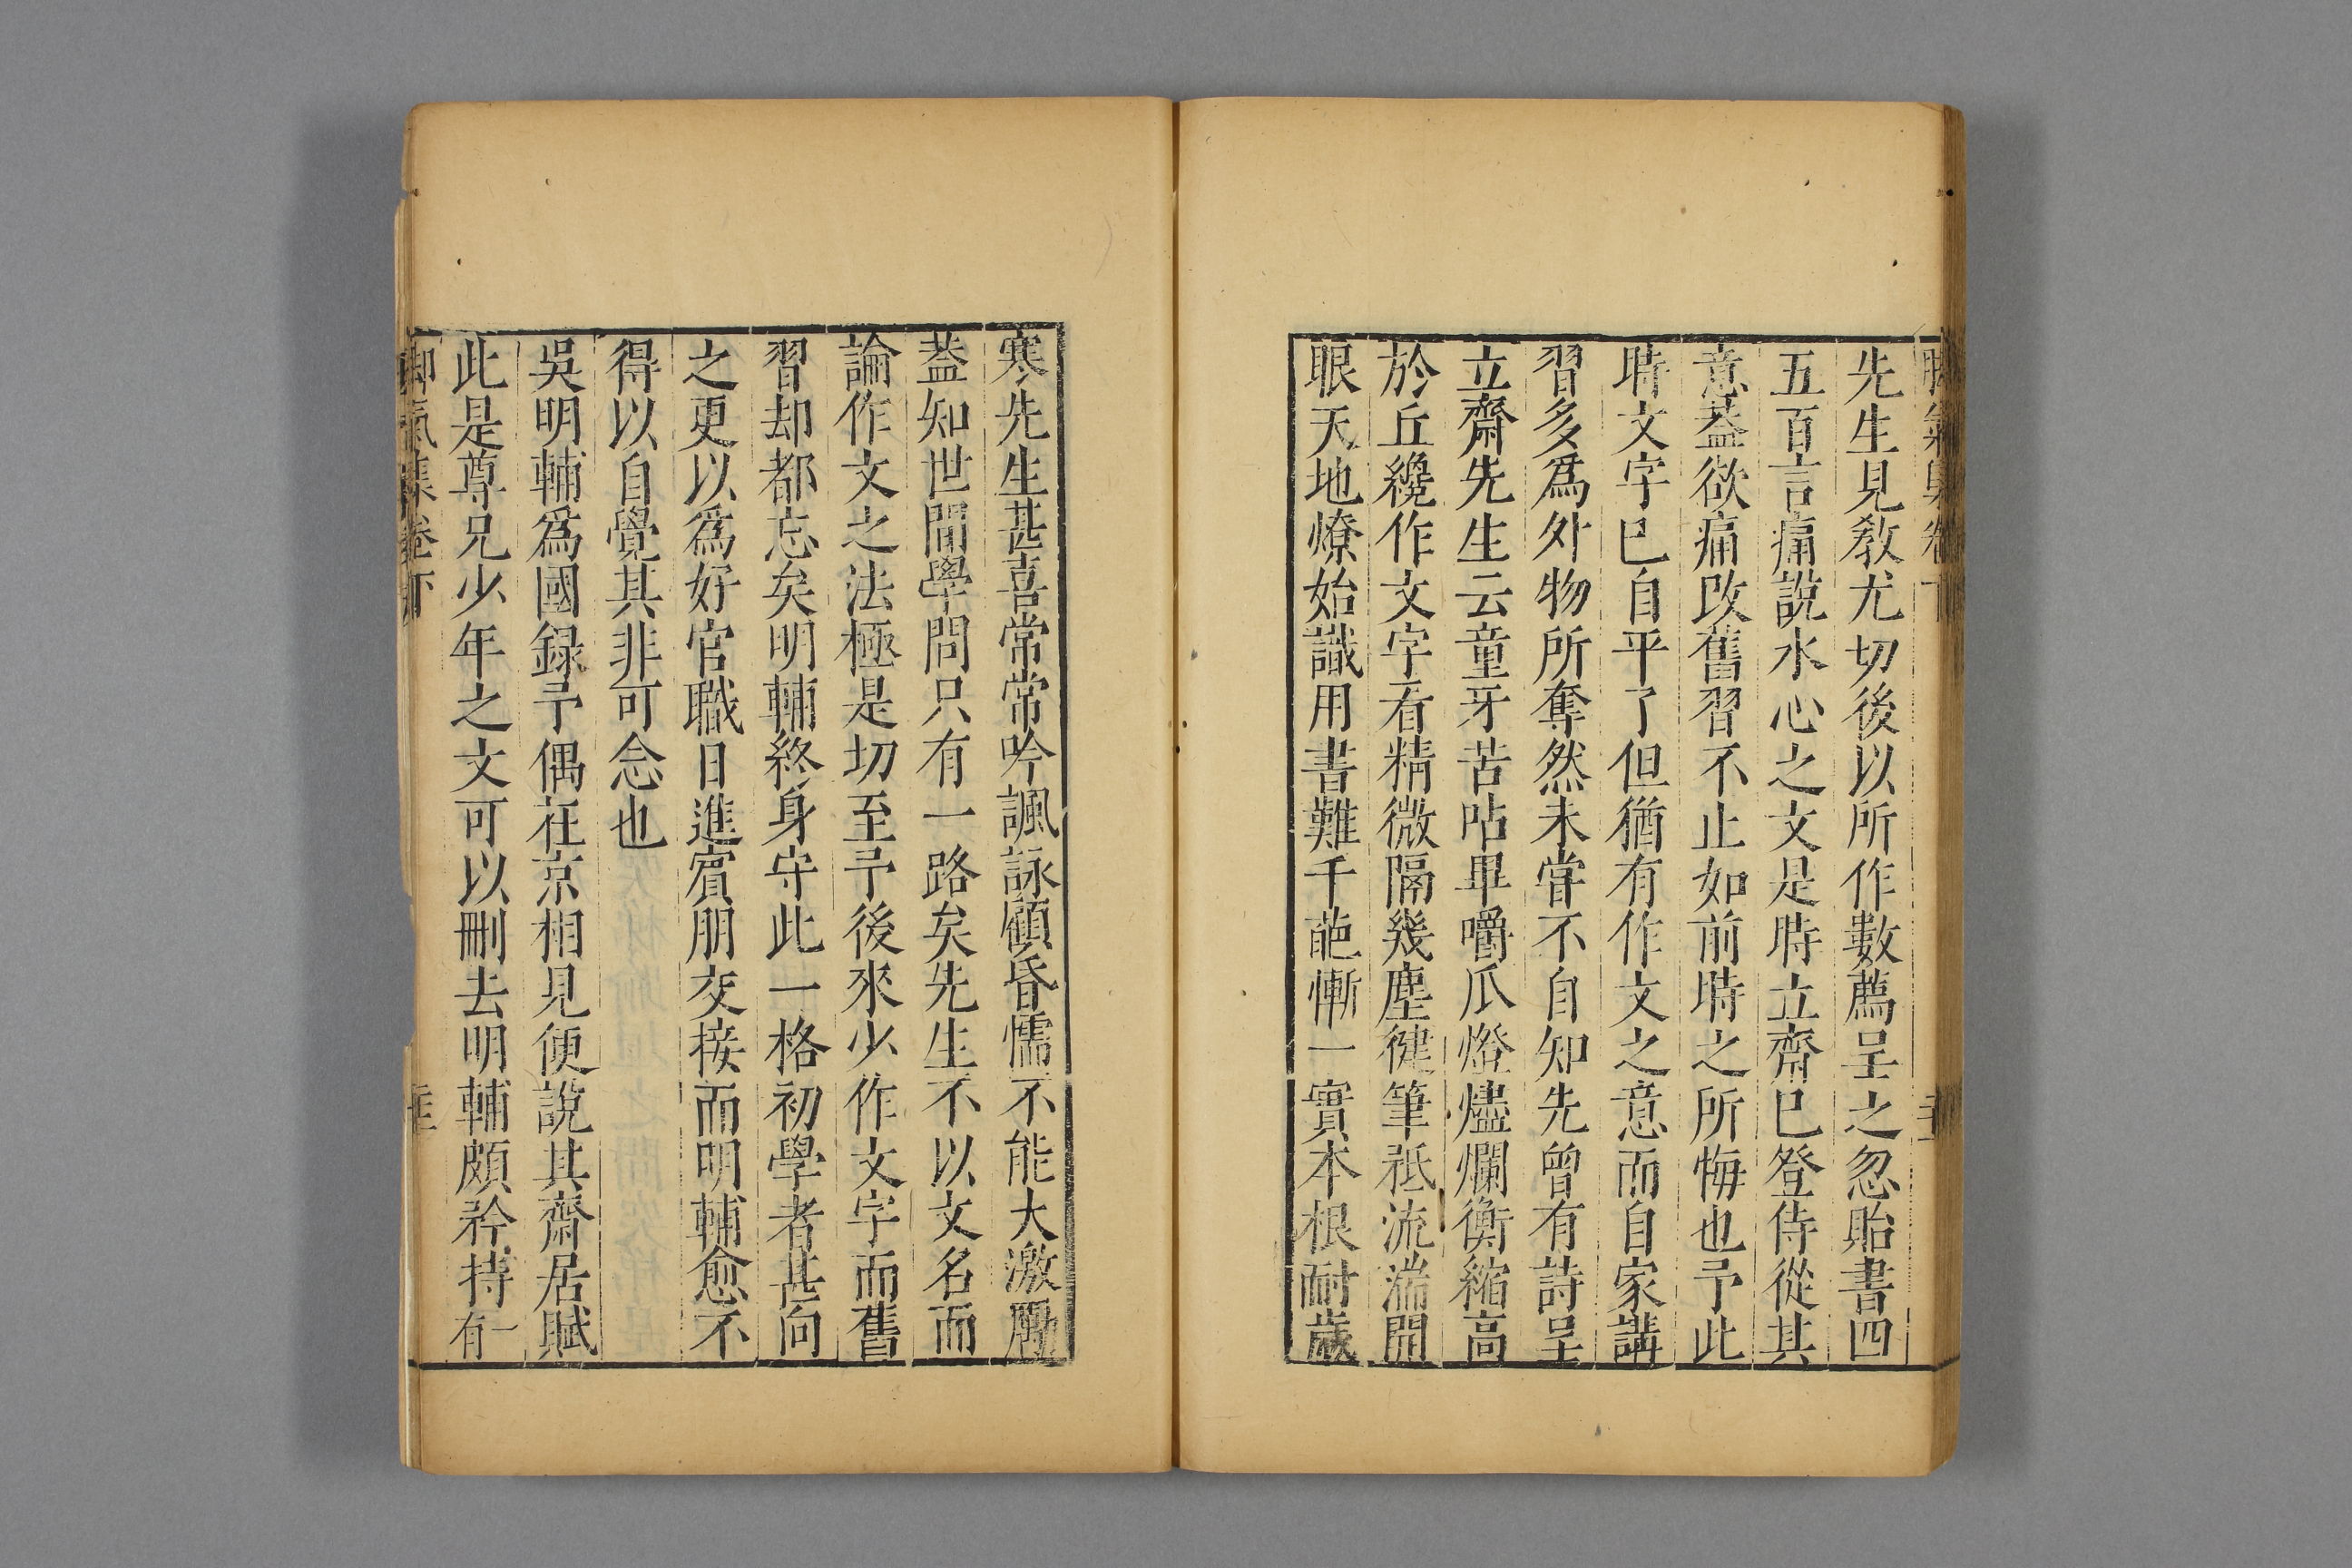 脚氣集卷下
先生見教尤切後以所作數薦呈之忽貽書四
五百言痛說水心之文是時立齋巳登侍從其
意葢欲痛改舊習不止如前時之所悔也予此
時文字巳自平了但猶有作文之意而自家講
習多爲外物所奪然未甞不自知先曾有詩呈
立齋先生云童牙苦呫畢嚼爪燈燼爛衡縮高
於丘纔作文字看精微隔幾塵徤筆祗流湍開
眼天地燎始識用書難千葩慚一實本根耐歲
寒先生甚喜常常吟諷詠顧昏懦不能大激勵
葢知世間學問只有一路矣先生不以文名而
論作文之法極是切至予後來少作文字而舊
習却都忘矣明輔終身守此一格初學者甚向
之更以爲好官職日進賓朋交接而明輔愈不
得以自覺其非可念也
吳明輔爲國録予偶在京相見便說其齋居賦
此是尊兄少年之文可以刪去明輔頗矜持有一
脚氣集卷下